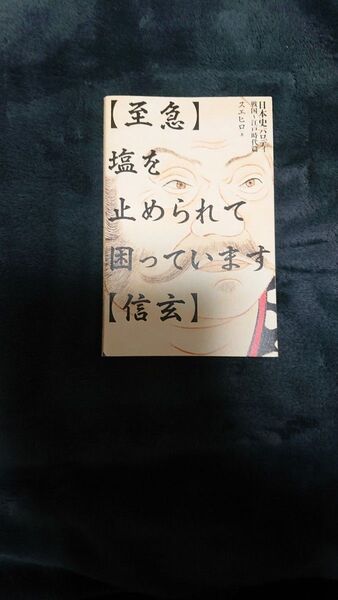 【至急】
塩を
止められて
困っています
【信玄】
日本史パロディ
戦国~江戸時代篇
スエヒロ 著